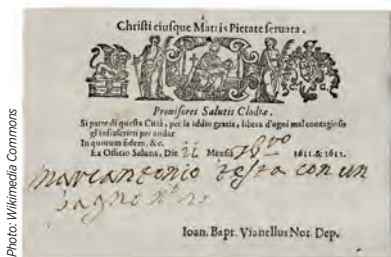 Photo: Wikimedia Commons
Christi eiusque Matris Pietate seruata.
Prouisores Salutis Clodiæ.
Si parte di questa Città, per la Iddio gratia, libera d'ogni mal contagioso
gl'infrascritti per andar
In quorum fidem, &c.
Ex Officio Salutis, Die 22 Mensis 1611. & 1612.
Marcantonio Testa con un
Ioan. Bapt. Vianellus Not. Dep.